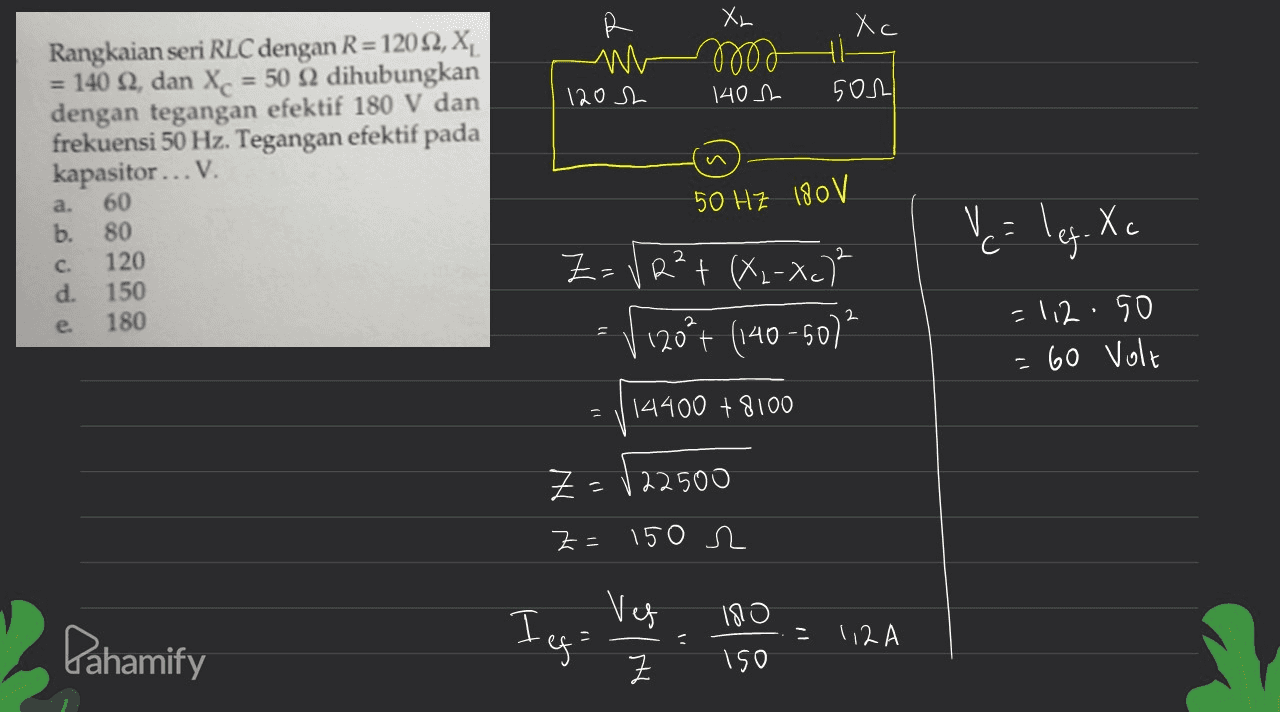 Rangkaian seri RLC dengan R = 120 Ω, X_L
= 140 Ω, dan X_C = 50 Ω dihubungkan
dengan tegangan efektif 180 V dan
frekuensi 50 Hz. Tegangan efektif pada
kapasitor ... V.
a. 60
b. 80
c. 120
d. 150
e. 180
R X_L X_C
120 Ω 140 Ω 50 Ω
50 Hz 180 V
Z = √(R² + (X_L - X_C)²)
= √(120² + (140 - 50)²)
= √(14400 + 8100)
Z = √22500
Z = 150 Ω
I_ef = V_ef / Z = 180 / 150 = 1,2 A
V_C = I_ef . X_C
= 1,2 . 50
= 60 Volt
Pahamify